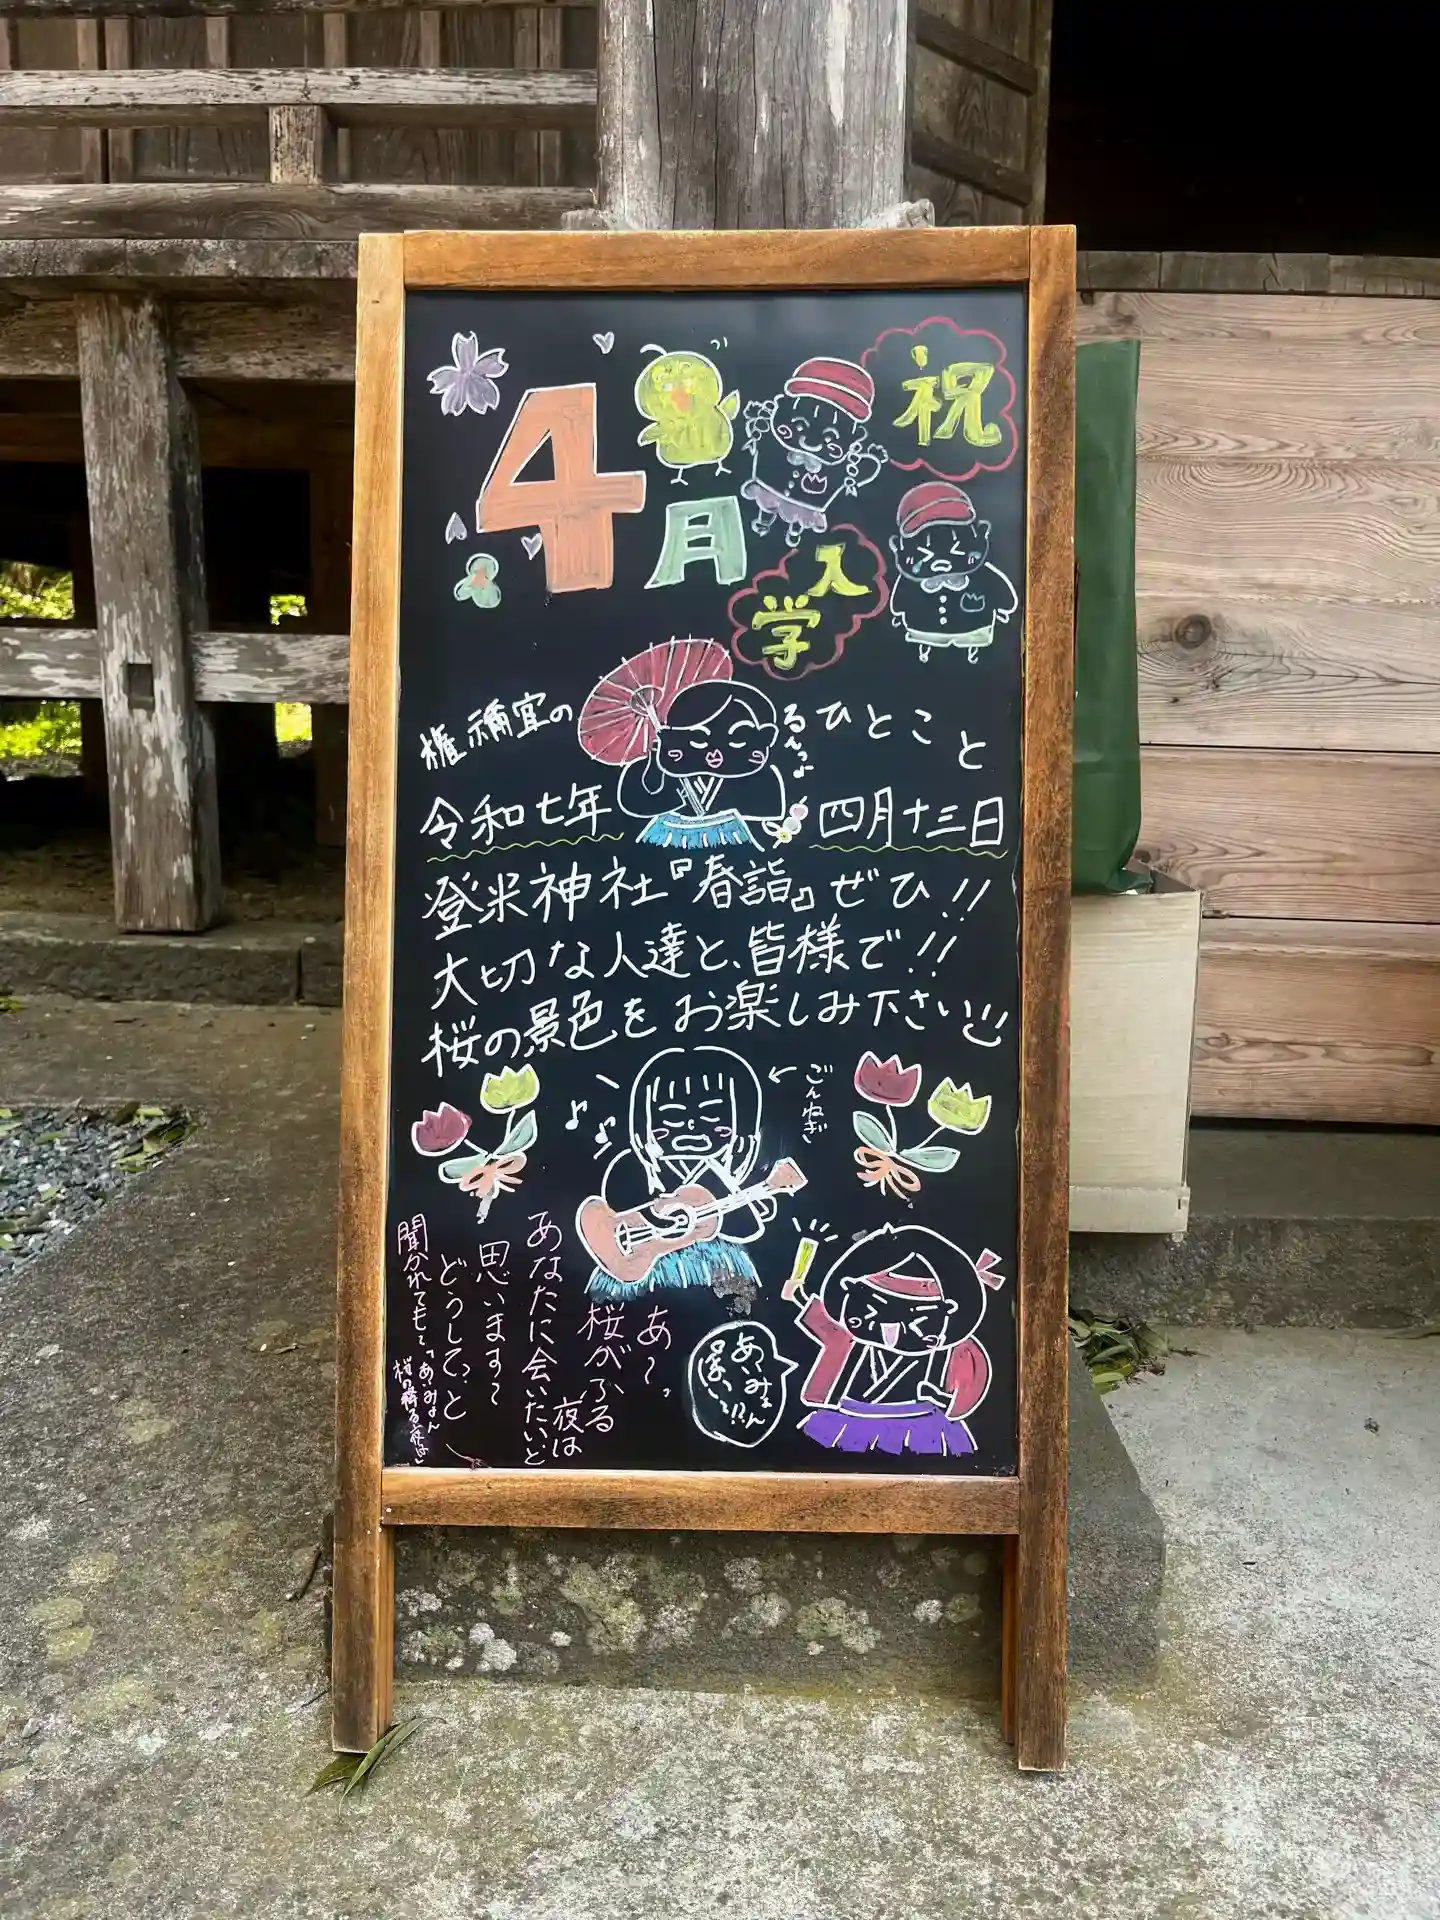 4月
祝
入学
権禰宜のひとこと
るんっ♪
令和七年 四月十三日
登米神社『春詣』ぜひ!!
大切な人達と、皆様で!!
桜の景色をお楽しみ下さい
←ごんねぎ
あ〜、
桜がふる
夜は
あなたに会いたいと
思います〜
どうして?と
聞かれても〜
「あいみょん
桜の降る夜は」
あいみょん